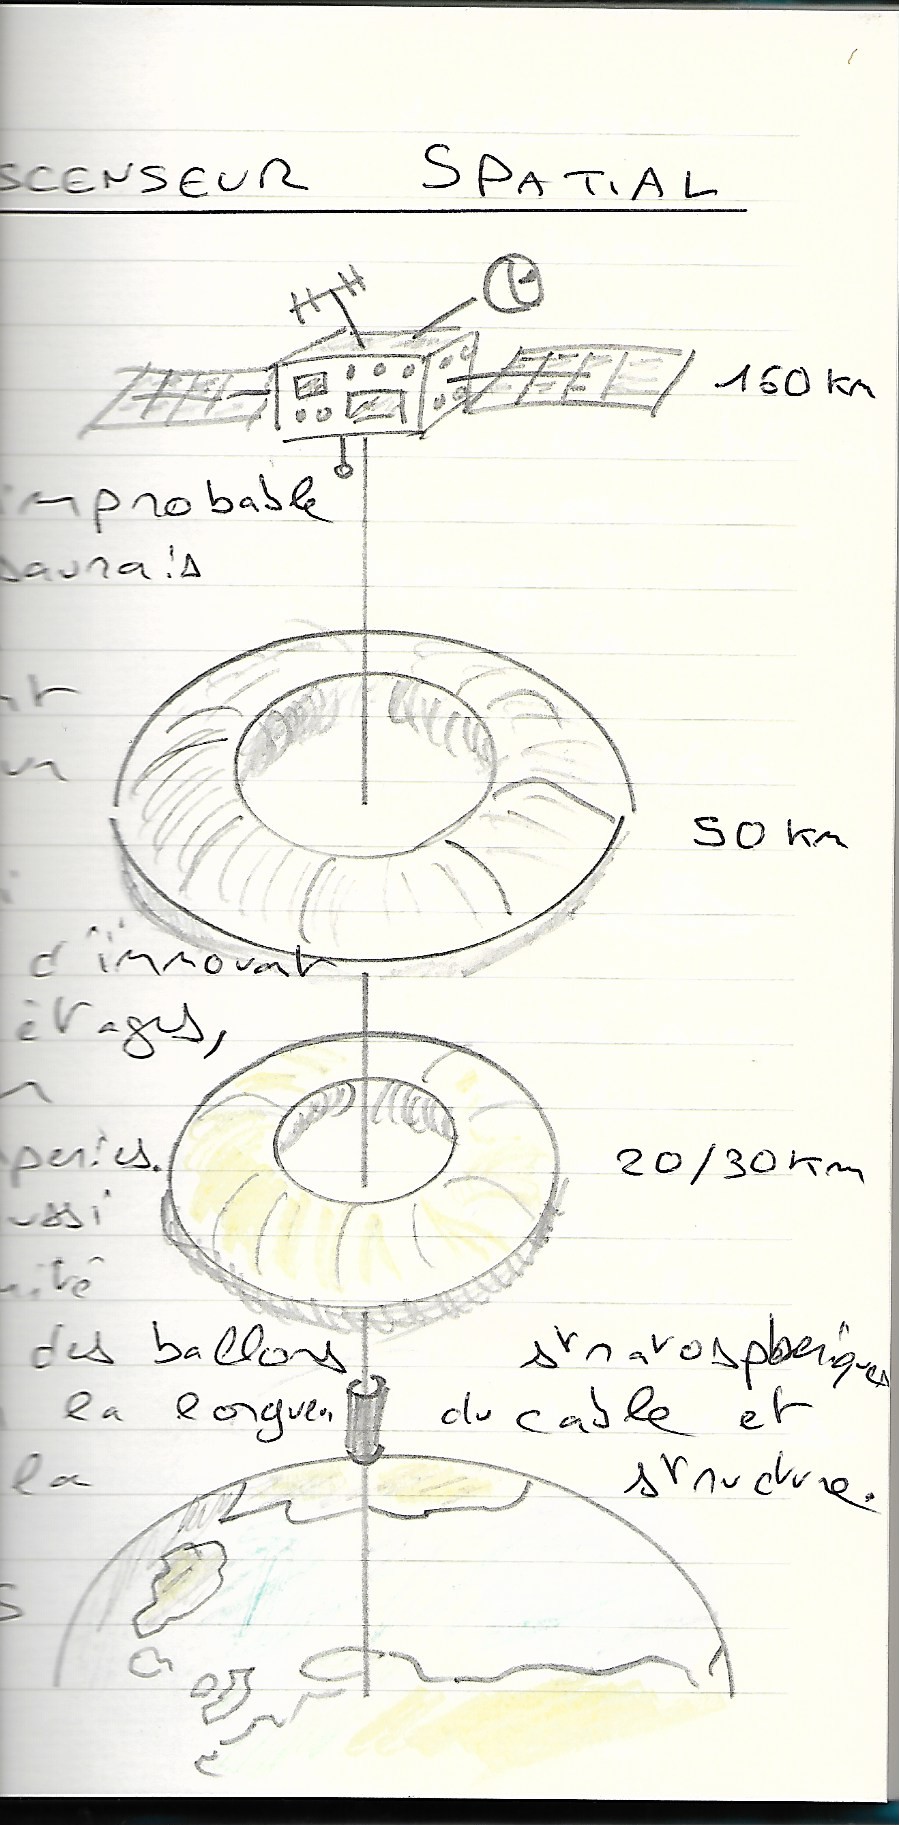 SCENSEUR SPATIAL
150 km
improbable
saurais
nt
un
50 km
i
d'innovant
étages,
n
20/30 km
peries.
ussi
uité
des ballons stratosphériques
la longueur du cable et
la structure.
s